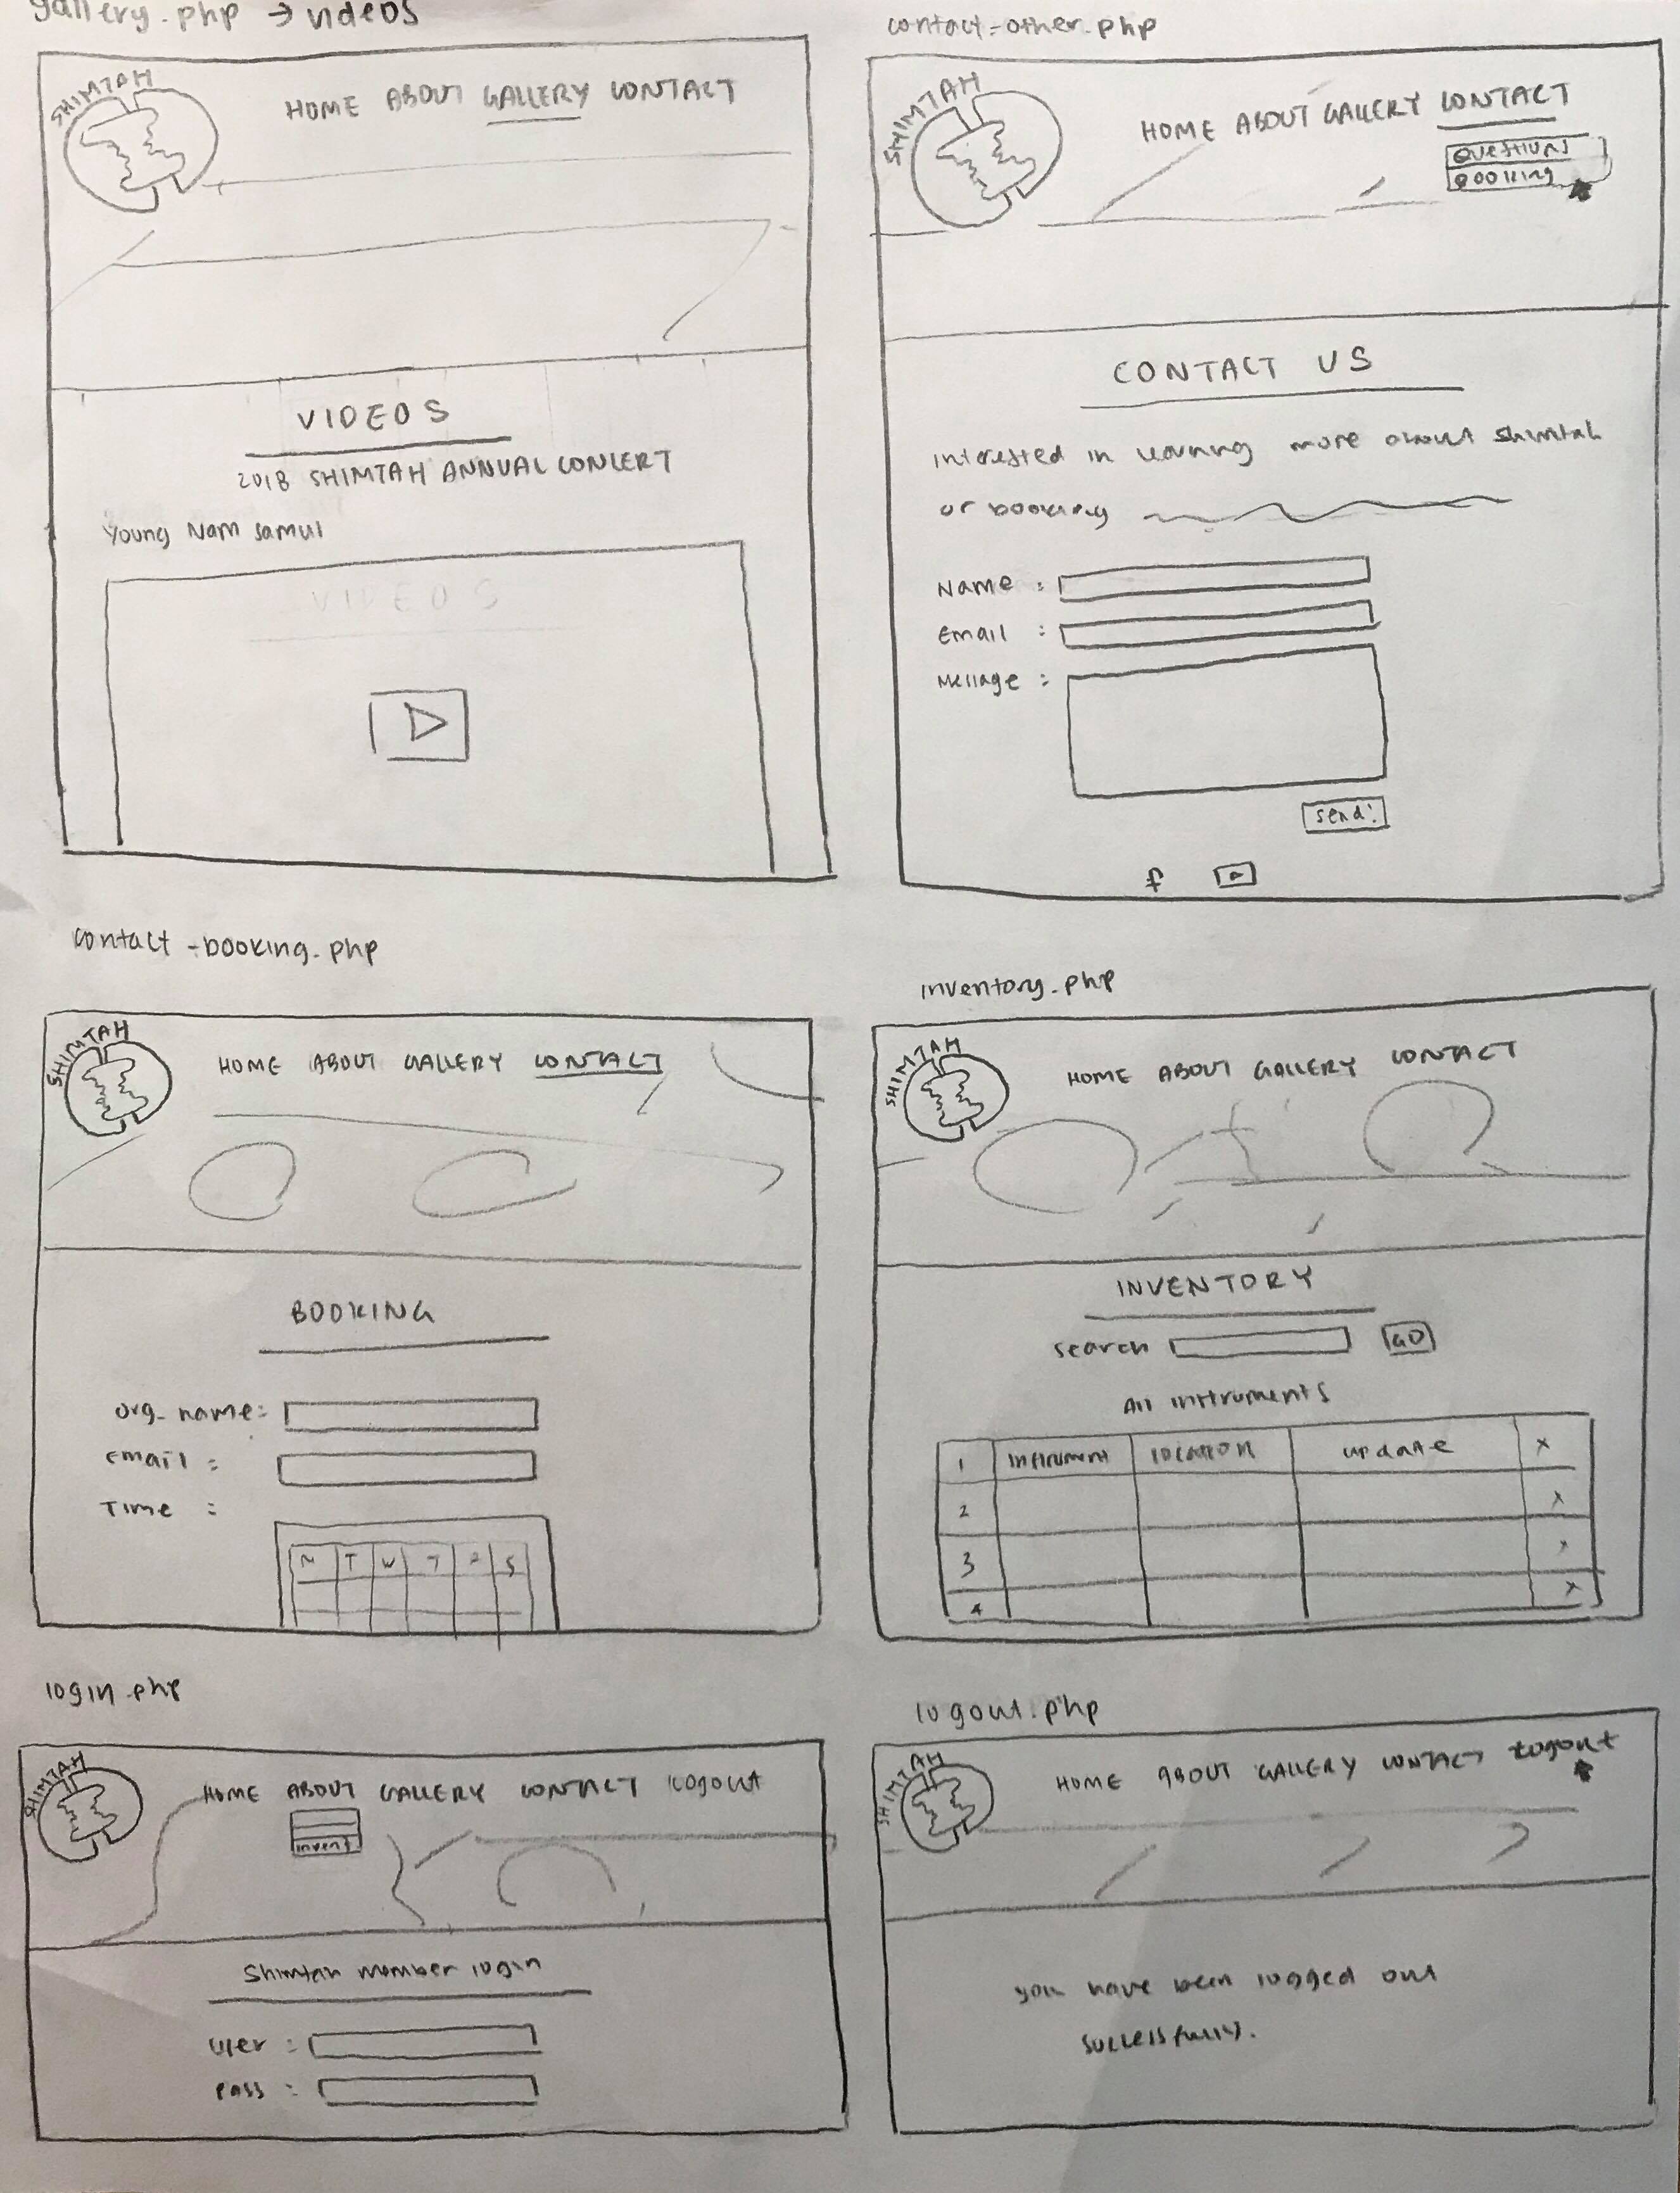 gallery.php → videos
SHIMTAH
HOME ABOUT GALLERY CONTACT
VIDEOS
2018 SHIMTAH ANNUAL CONCERT
Young Nam Samul
VIDEOS
contact-other.php
SHIMTAH
HOME ABOUT GALLERY CONTACT
QUESTIONS
BOOKING
CONTACT US
interested in learning more about shimtah
or booking
Name :
Email :
Message :
send!
f
contact-booking.php
SHIMTAH
HOME ABOUT GALLERY CONTACT
BOOKING
org. name:
email :
Time :
M T W T F S
inventory.php
SHIMTAH
HOME ABOUT GALLERY CONTACT
INVENTORY
search GO
All instruments
1 instrument location update x
2 x
3 x
4 x
login.php
SHIMTAH
HOME ABOUT GALLERY CONTACT logout
invent
Shimtah member login
user :
pass :
logout.php
SHIMTAH
HOME ABOUT GALLERY CONTACT logout
you have been logged out
successfully.